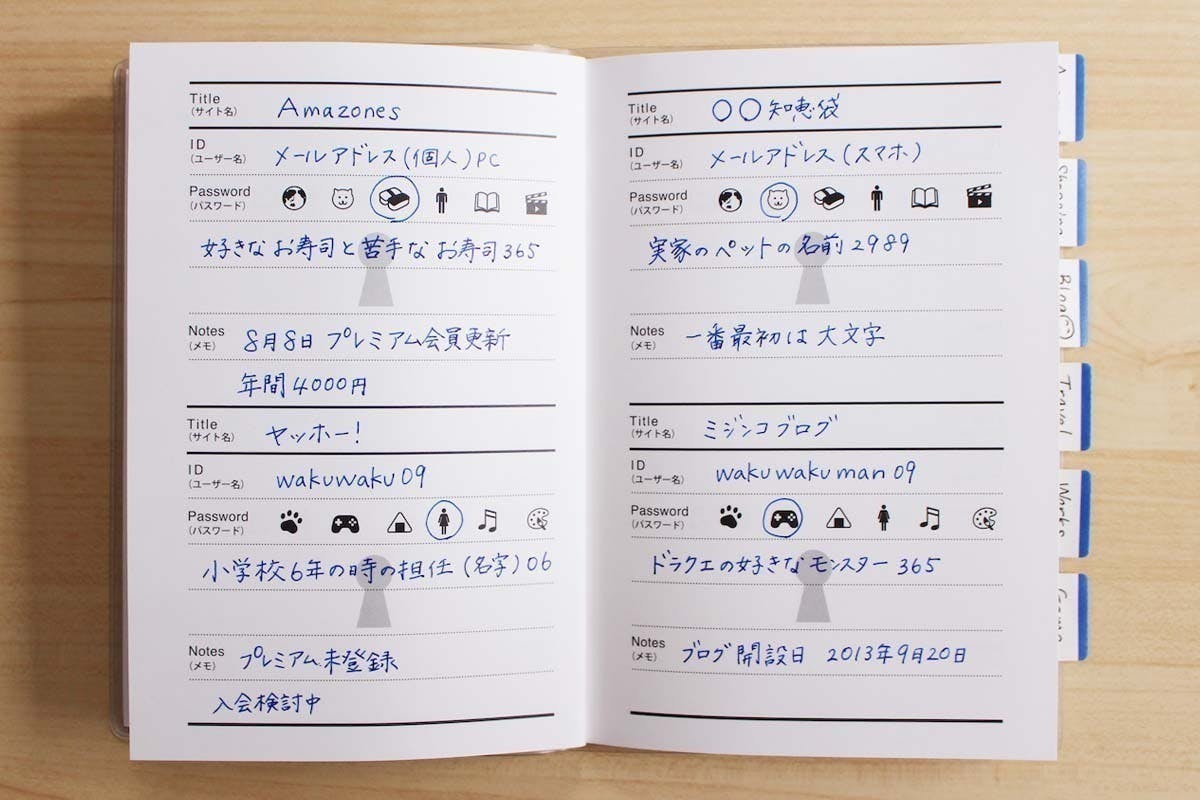 Title
(サイト名)
Amazones
ID
(ユーザー名)
メールアドレス(個人)PC
Password
(パスワード)
好きなお寿司と苦手なお寿司365
Notes
(メモ)
8月8日 プレミアム会員更新
年間4000円
Title
(サイト名)
ヤッホー!
ID
(ユーザー名)
wakuwaku09
Password
(パスワード)
小学校6年の時の担任(名字)06
Notes
(メモ)
プレミアム未登録
入会検討中
Title
(サイト名)
〇〇知恵袋
ID
(ユーザー名)
メールアドレス(スマホ)
Password
(パスワード)
実家のペットの名前2989
Notes
(メモ)
一番最初は大文字
Title
(サイト名)
ミジンコブログ
ID
(ユーザー名)
wakuwakuman09
Password
(パスワード)
ドラクエの好きなモンスター365
Notes
(メモ)
ブログ開設日 2013年9月20日
Blog
Travel
Works
Game